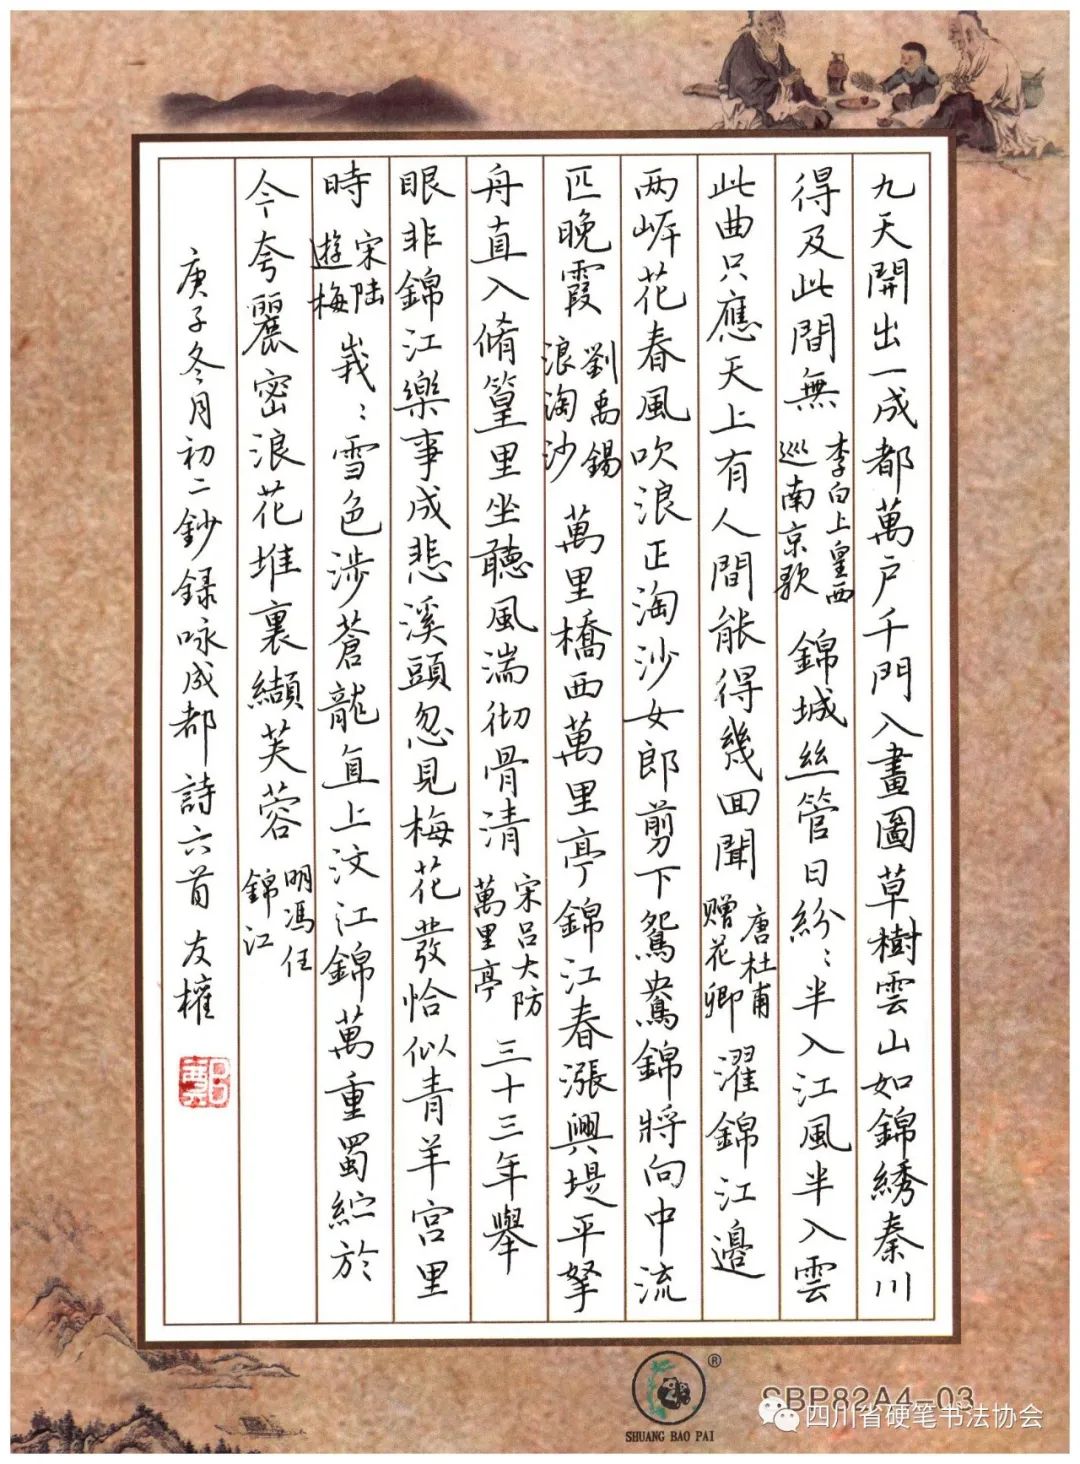 九天開出一成都萬户千門入畫圖草樹雲山如錦綉秦川
得及此間無李白上皇西巡南京歌錦城丝管日紛：半入江風半入雲
此曲只應天上有人間能得幾回聞唐杜甫赠花卿濯錦江邊
两岍花春風吹浪正淘沙女郎剪下鴛鴦錦將向中流
匹晚霞劉禹錫浪淘沙萬里橋西萬里亭錦江春漲興堤平拏
舟直入脩篁里坐聽風湍彻骨清宋吕大防萬里亭三十三年舉
眼非錦江樂事成悲溪頭忽見梅花發恰似青羊宫里
時宋陆遊梅峩：雪色涉蒼龍直上汶江錦萬重蜀紵於
今夸麗密浪花堆裏纈芙蓉明馮任錦江
庚子冬月初二鈔録咏成都詩六首 友權
SHUANG BAO PAI
SBP82A4-03
四川省硬笔书法协会